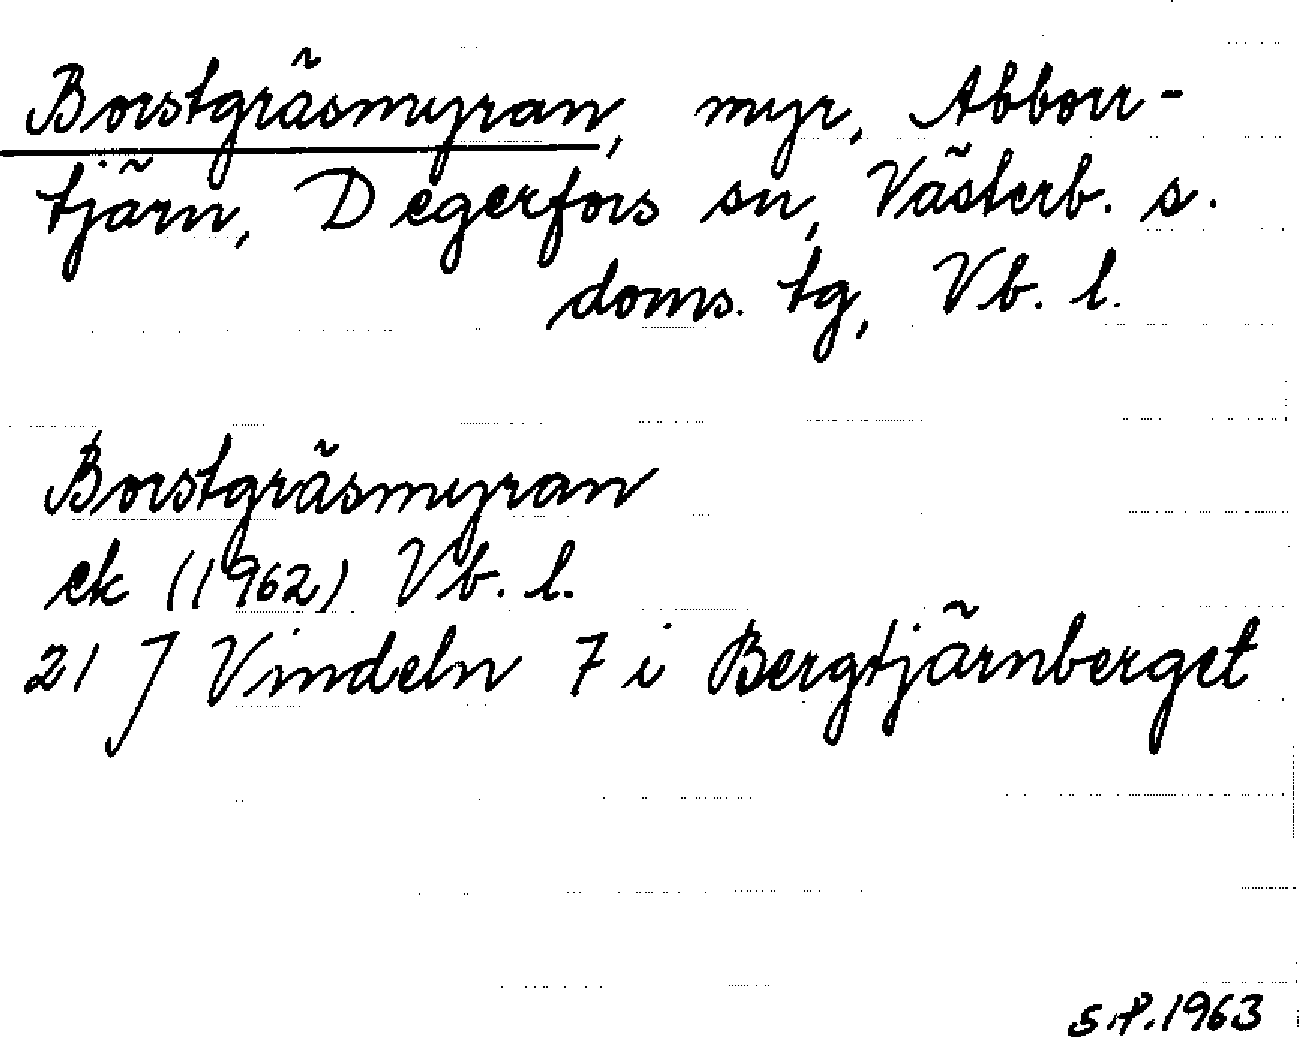 Borstgräsmyran, myr, Abborr-
tjärn, Degerfors sn, Västerb. s.
doms. tg, Vb. l.
Borstgräsmyran
ek (1962) Vb. l.
21 J Vindeln 7 i Bergtjärnberget
S.P. 1963